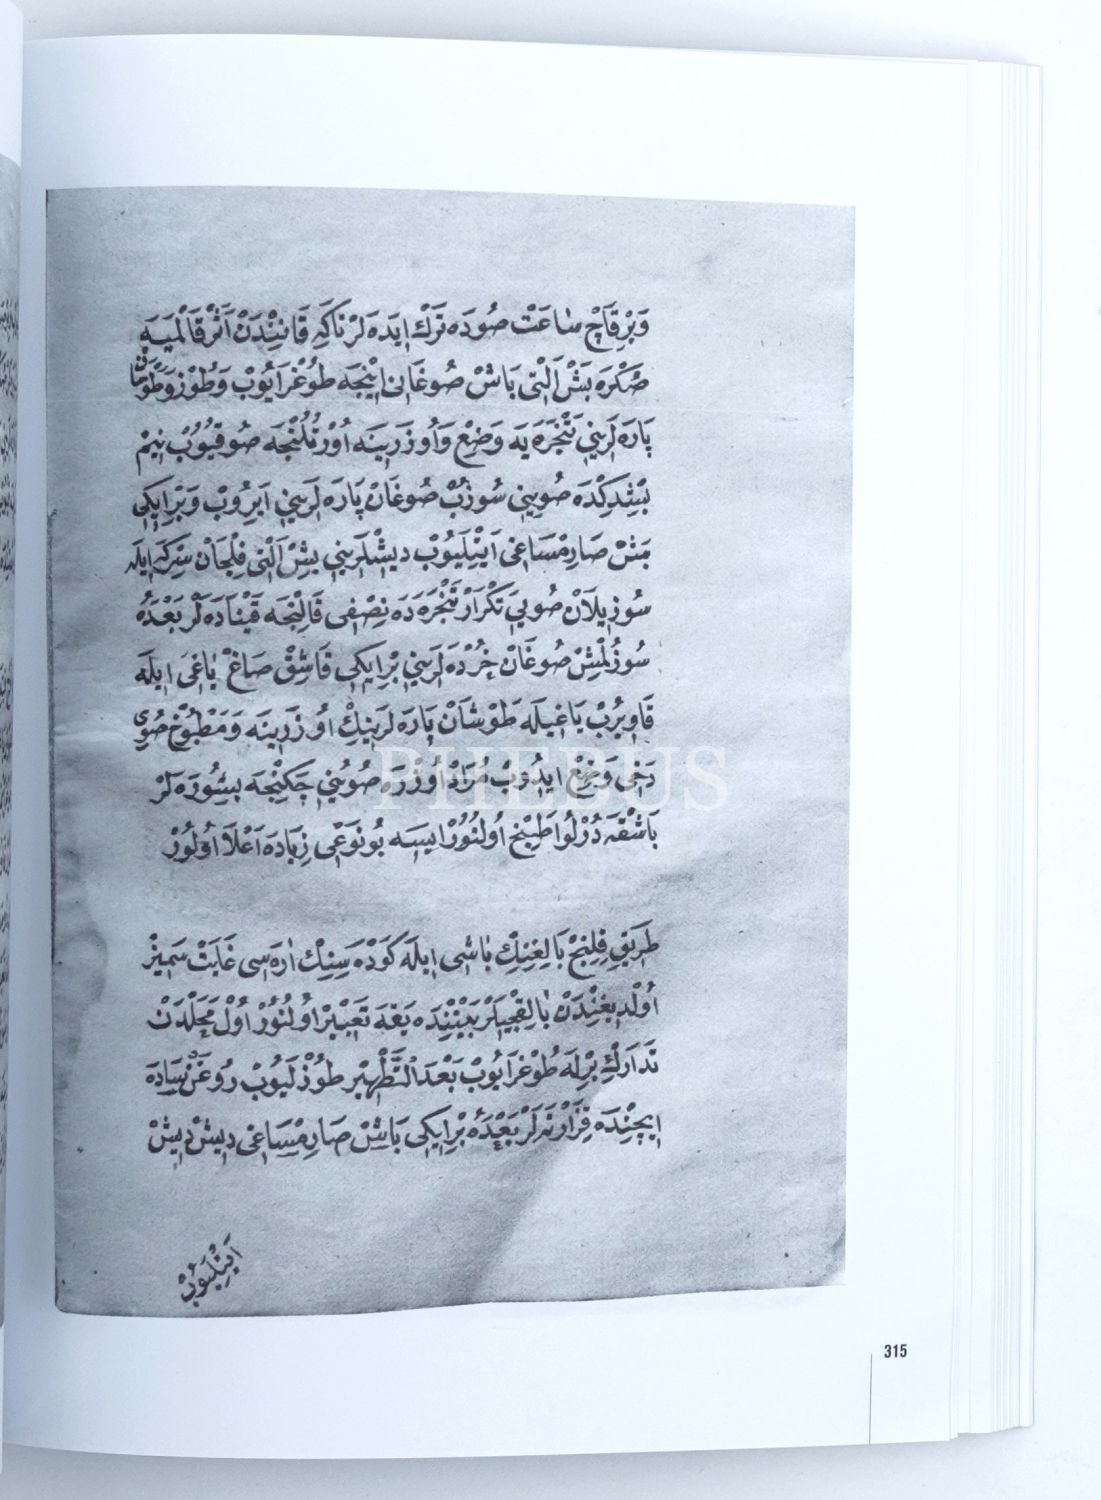 وَبِرْ قَاچْ سَاعَتْ صُودَه تَرْك اِيدَه لَرْ تَاكِه قَانِنْدَنْ اَثَرْ قَالْمَيَه
صُكْرَه بَشْ اَلْتِى بَاشْ صُوغَانِ اِينْجَه طُوغْرَايُوبْ وَطُوزْ
پَارَه لَرِينِي تَنْجَرَه يَه وَضِعْ وَاُوزَرِينَه اُورْتُلُنْجَه صُو قُيُوبْ نِيمْ
بِشْدِكْدَه صُويِنِي سُوزُبْ صُوغَانْ پَارَه لَرِينِي اَيِرُوبْ وَبِرْ اِيكِي
بَشْ صَارِمْسَاغِى اَيِتْلَيُوبْ دِيشْلَرِينِي بِشْ اَلْتِى فِلْجَانْ سِرْكَه اِيلَه
سُوزِيلَانْ صُويِي تَكْرَارْ تَنْجَرَه دَه نِصْفِى قَالِنْجَه قَيْنَادَه لَرْ بَعْدَهُ
سُوزُلْمِشْ صُوغَانْ خُرْدَه لَرِينِي بِرْ اِيكِي قَاشِقْ صَاغْ يَاغِى اِيلَه
قَاوِيرُبْ يَاغِيلَه طَوْشَانْ پَارَه لَرِينِكْ اُوزَرِينَه وَمَطْبُوخْ صُويِ
دَخِي وَضِعْ اِيدُوبْ مُرَادْ اُوزَرَه صُويُنِي چَكِنْجَه بِشُورَه لَرْ
بَاشْقَه دُرْلُوا طَبْخ اُولُنُورْ اِيسَه بُو نَوْعِى زِيَادَه اَعْلَا اُولُورْ
طَرِيقِ قِلِنْجْ بَالِغِنِكْ بَاشِى اِيلَه كَوْدَه سِنِكْ اَرَه سِى غَايَتْ سَمِيزْ
اُولْدِيغِنْدَنْ بَالِقْجِيلَرْ بَيْنِنْدَه يَقَه تَعْبِيرْ اُولُنُورْ اُولْ مَحَلْدَنْ
تَدَارُكِ بِرْلَه طُوغْرَايُوبْ بَعْدَ التَّطْهِيرْ طُوزْلَيُوبْ رُوغَنْ سَادَه
اِيچِنْدَه قِزَارْدَه لَرْ بَعْدَهُ بِرْ اِيكِى بَاشْ صَارِمْسَاغِى دِيشْ دِيشْ
اَيِتْلَيُوبْ
PHEBUS
315